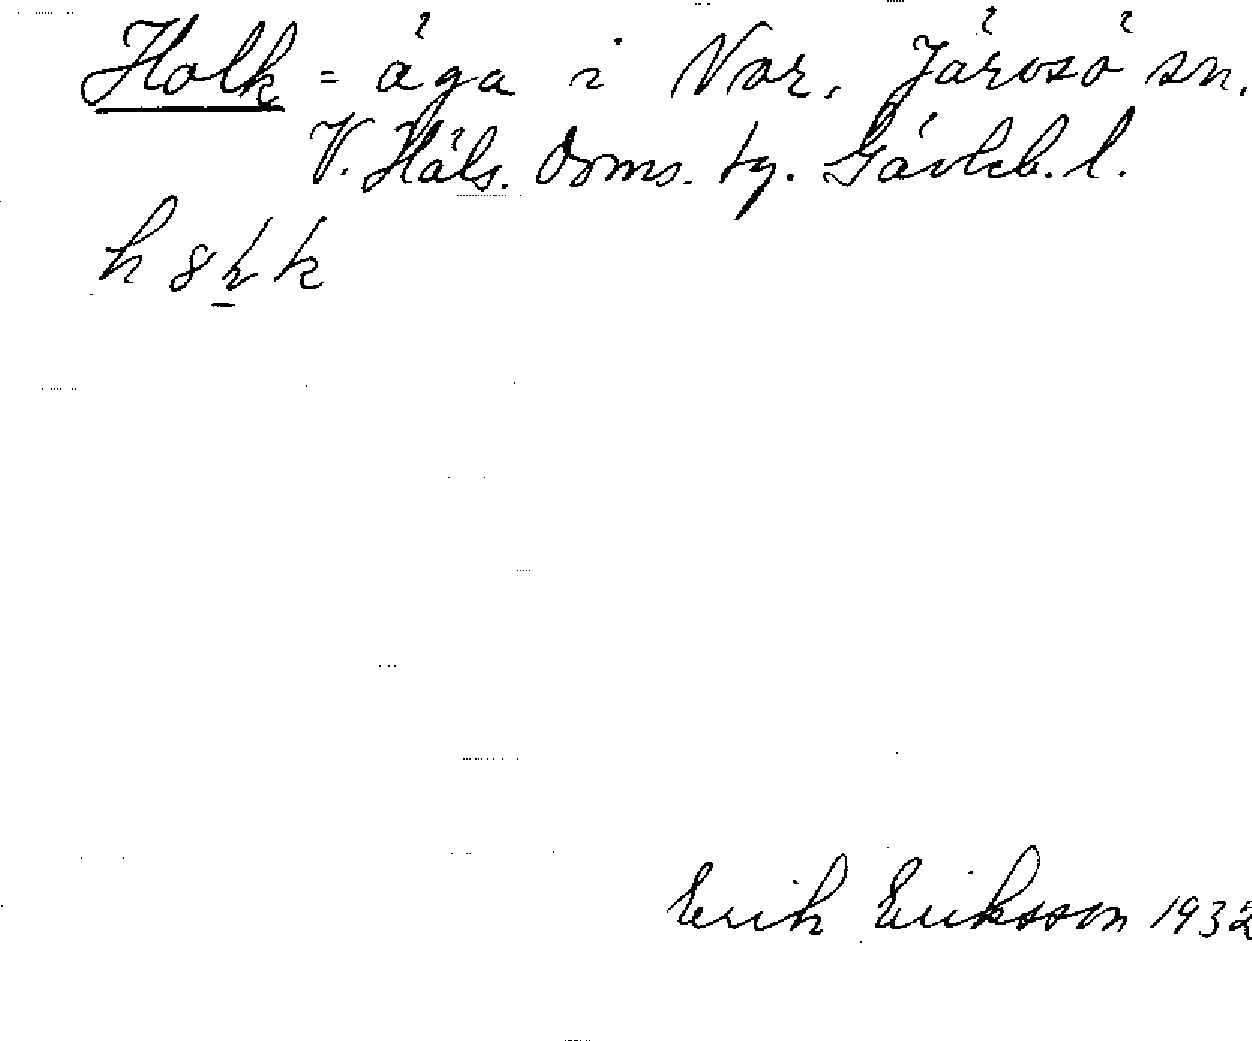 Holk = äga i Nor. Järvsö sn.
V. Häls. Doms. tg. Gävleb. l.
Erik Eriksson 1932